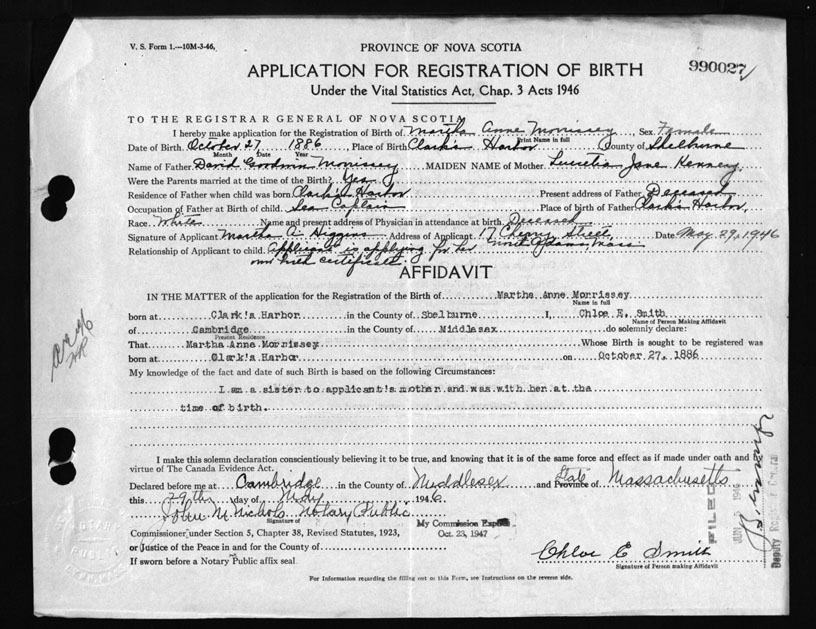 V. S. Form 1.—10M-3-46.
PROVINCE OF NOVA SCOTIA
990027
APPLICATION FOR REGISTRATION OF BIRTH
Under the Vital Statistics Act, Chap. 3 Acts 1946
TO THE REGISTRAR GENERAL OF NOVA SCOTIA
I hereby make application for the Registration of Birth of Martha Anne Morrissey, Sex Female
Print Name in full
Date of Birth October 27 1886, Place of Birth Clark's Harbor County of Shelburne
Month Date Year
Name of Father David Goodwin Morrissey MAIDEN NAME of Mother Lucretia Jane Kenney
Were the Parents married at the time of the Birth? Yes
Residence of Father when child was born Clark's Harbor Present address of Father Deceased
Occupation of Father at Birth of child Sea Captain Place of birth of Father Clark's Harbor,
Race White Name and present address of Physician in attendance at birth Deceased
Signature of Applicant Martha A. Higgins Address of Applicant 17 Cherry Street, Date May 29, 1946
North Adams, Mass
Relationship of Applicant to child Applicant is applying for her
own birth certificate.
AFFIDAVIT
IN THE MATTER of the application for the Registration of the Birth of Martha Anne Morrissey
Name in full
born at Clark's Harbor in the County of Shelburne I, Chloe E. Smith
Name of Person Making Affidavit
of Cambridge in the County of Middlesex do solemnly declare:
Present Residence
That Martha Anne Morrissey Whose Birth is sought to be registered was
born at Clark's Harbor on October 27, 1886
My knowledge of the fact and date of such Birth is based on the following Circumstances:
I am a sister to applicant's mother and was with her at the
time of birth.
I make this solemn declaration conscientiously believing it to be true, and knowing that it is of the same force and effect as if made under oath and by
virtue of The Canada Evidence Act.
Declared before me at Cambridge in the County of Middlesex and State Province of Massachusetts
this 29th day of May 1946
John M. Nichols Notary Public
Signature of
My Commission Expires
Oct. 23, 1947
Commissioner under Section 5, Chapter 38, Revised Statutes, 1923,
or Justice of the Peace in and for the County of
If sworn before a Notary Public affix seal
Chloe E Smith
Signature of Person making Affidavit
For Information regarding the filling out of this Form, see Instructions on the reverse side.
FILED
JUN 5 1946
Deputy Registrar General